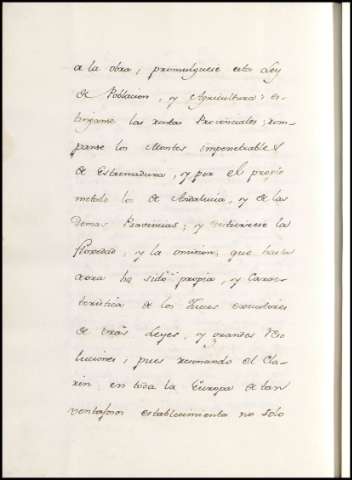 a la obra; promulguese esta Ley
de Poblacion, y Agricultura: es-
tinganse las rentas Provinciales; rom-
panse los Montes impenetrables
de Estremadura, y por el propio
metodo los de Andalucia, y de las
demas Provincias; y destierrese la
floxedad, y la omision, que hasta
aora ha sido propia, y Carac-
teristica de los Jueces executores
de vrãs Leyes, y grandes Reso-
luciones; pues resonando el Cla-
rin en toda la Europa de tan
ventajoso establecimiento no solo